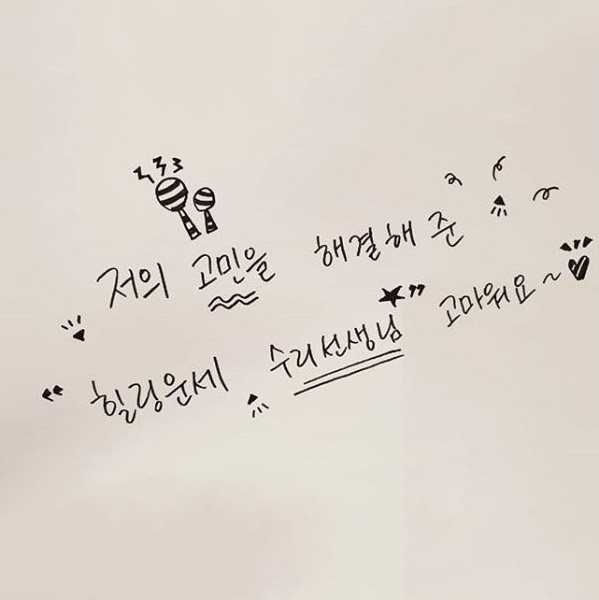 저의 고민을 해결해 준
"힐링운세 수리선생님" 고마워요~